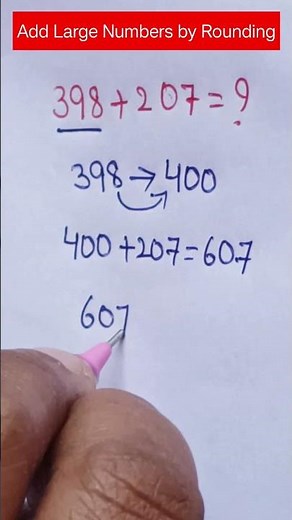 Add Large Numbers by Rounding
398+207=?
398→400
400+207=607
607